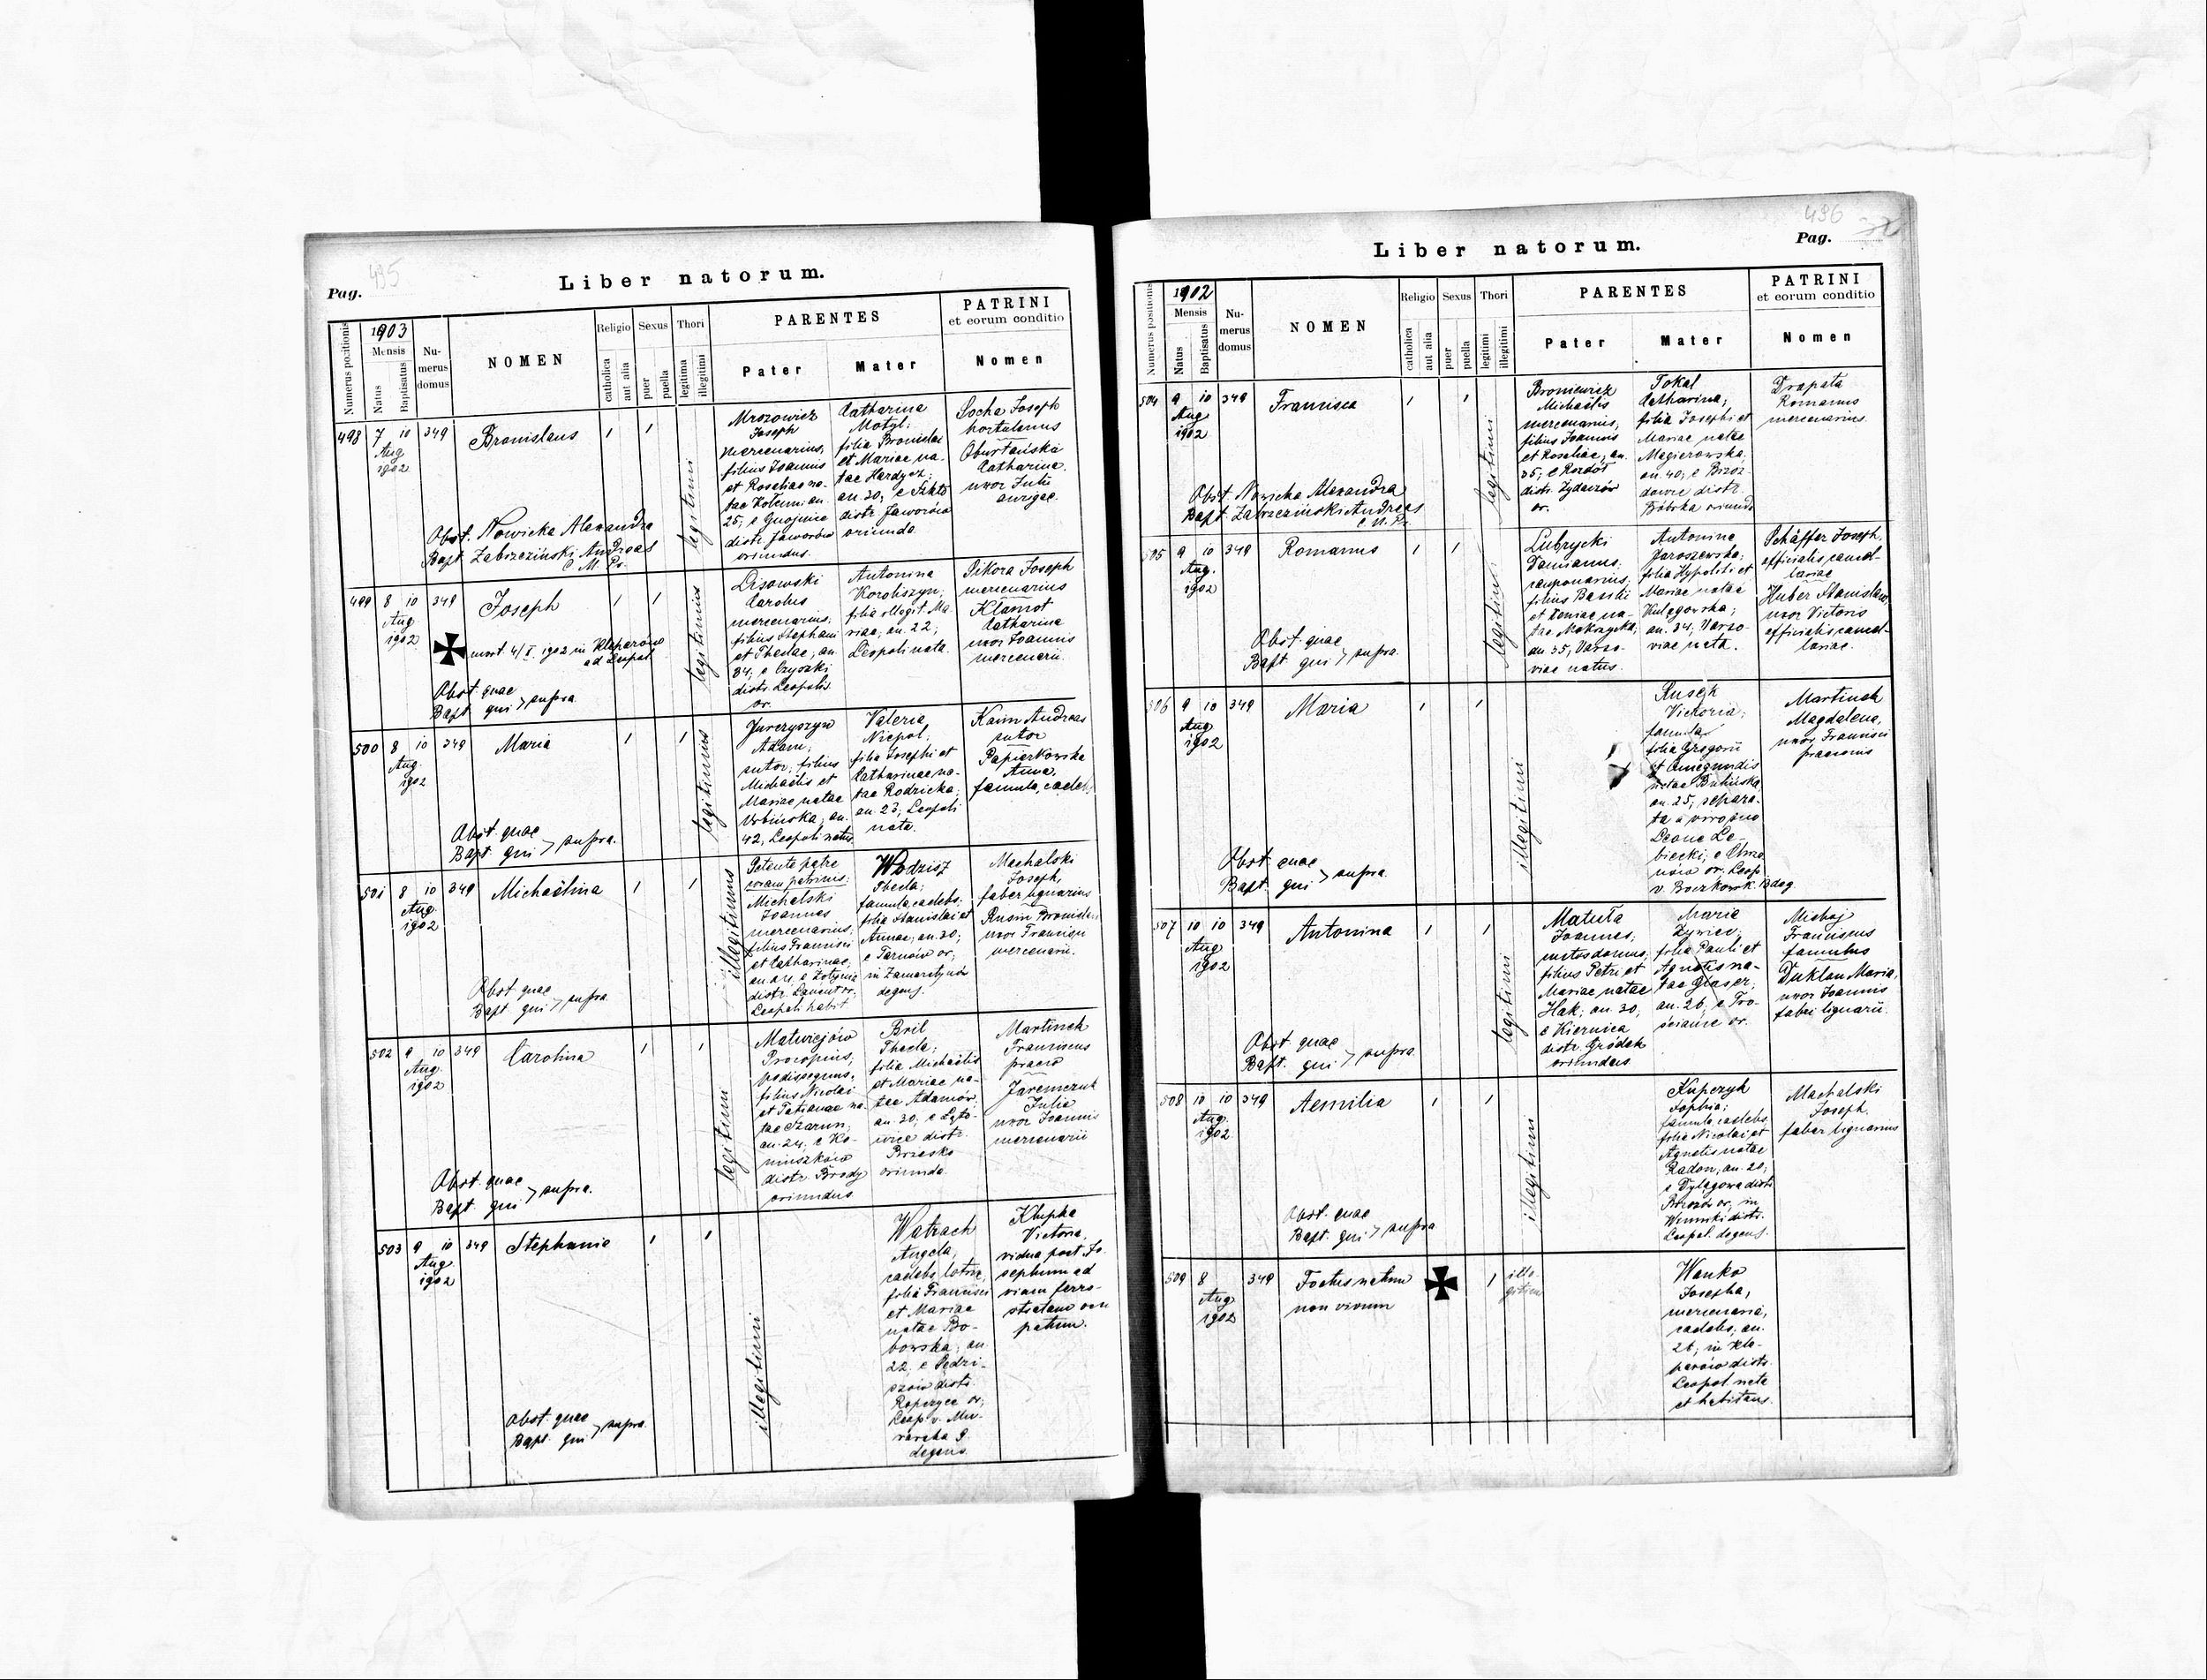 Pag. 435
Liber natorum.
Numerus positionis
1903
Mensis
Natus
Baptisatus
Numerus domus
NOMEN
Religio
catholica
aut alia
Sexus
puer
puella
Thori
legitima
illegitimi
PARENTES
Pater
Mater
PATRINI
et eorum conditio
Nomen
498 7 10 349 Bronislaus 1 1
Aug
1902
legitimi
Mrozowicz
Joseph
mercenarius,
filius Joannis
et Rosaliae na-
25; e Gnojnice
distr. Jaworów
oriundus.
Catharina
Motyl;
filia Bronislai
et Mariae na-
tae Hardycz;
an. 30; e Szkło
distr. Jaworów
oriunda.
Socha Joseph
hortulanus
Catharina,
uxor Julii
aurigae.
Obst. Nowicka Alexandra
Bapt. Zabrzeziński Andreas
C. M. Ps.
499 8 10 349 Joseph 1 1
Aug
1902
mort. 4/X 1902 in Kleparów
ad Leopol.
legitimus
Lisowski
Carolus
mercenarius;
filius Stephani
et Theclae; an.
34; e Czyszki
distr. Leopolis
or.
Antonina
Koroliszyn;
filia illegit. Ma-
riae; an. 22;
Leopoli nata.
Sikora Joseph
mercenarius
Klamot
Catharina
uxor Joannis
mercenarii.
Obst. quae
Bapt. qui > supra.
500 8 10 349 Maria 1 1
Aug.
1902
legitimus
Jurczyszyn
Adam;
sutor; filius
Michaëlis et
Mariae natae
42, Leopoli natus
Valeria
Niepol;
filia Josephi et
Catharinae na-
tae Rodzicka;
an. 23; Leopoli
nata.
Kaim Andreas
sutor
Papierkowska
Anna,
famula, caelebs
Obst. quae
Bapt. qui > supra.
501 8 10 349 Michaëlina 1 1
Aug.
1902
illegitimus
Petente patre
coram patrinis:
Michalski
Joannes
mercenarius;
filius Francisci
et Catharinae;
distr. Łańcut or;
Leopoli habit.
Wodzisz
Thecla;
famula caelebs;
filia Stanislai et
Annae; an. 30;
e Tarnów or;
in Zamarstynów
degens.
Machalski
Joseph,
faber lignarius
Rusin Bronislava
uxor Francisci
mercenarii.
Obst. quae
Bapt. qui > supra.
502 9 10 349 Carolina 1 1
Aug.
1902
legitimi
Matwiejów
Procopius;
pedissequus;
filius Nicolai
et Tatianae na-
tae Szarun;
an. 24; e Ko-
niuszków
distr. Brody
oriundus
Bril
Thecla;
filia Michaëlis
et Mariae na-
tae Adamów
an. 30;
distr.
Brzesko
oriunda.
Martinek
Franciscus
praeco
Jaremczuk
Julia
uxor Joannis
mercenarii
Obst. quae
Bapt. qui > supra.
503 9 10 349 Stephania 1 1
Aug
1902
illegitimi
Watrach
Angela,
caelebs, lotrix,
filia Francisci
et Mariae
natae Bo-
bowska; an.
22. e Pędzi-
szów distr.
Ropczyce or;
Leop. v. Mu-
rarska 9
degens
Klupka
Victoria,
vidua post Jo-
sephum ad
viam ferro-
stratam occu-
patum.
Obst. quae
Bapt. qui > supra.
436
Pag.
Liber natorum.
Numerus positionis
1902
Mensis
Natus
Baptisatus
Numerus domus
NOMEN
Religio
catholica
aut alia
Sexus
puer
puella
Thori
legitimi
illegitimi
PARENTES
Pater
Mater
PATRINI
et eorum conditio
Nomen
504 9 10 349 Francisca 1 1
Aug
1902
legitimi
Broniewicz
Michaëlis
mercenarius;
filius Joannis
et Rosaliae; an.
35; e Rozdół
distr. Żydaczów
or.
Tokal
Catharina;
filia Josephi et
Mariae natae
Magierowska;
an. 40; e Brzoz-
dowce distr.
Bóbrka oriunda
Drapała
Romanus
mercenarius.
Obst. Nowicka Alexandra
Bapt. Zabrzeziński Andreas
C. M. Ps.
505 9 10 349 Romanus 1 1
Aug.
1902
legitimi
Lubrycki
Damianus;
cauponarius;
filius Basilii
et Xeniae na-
tae Mokrzycka;
an. 35; Varso-
viae natus.
Antonina
Jaroszewska;
filia Hypoliti et
Mariae natae
Kulagowska;
an. 34; Varso-
viae nata.
Schäffer Joseph,
officialis cancel-
lariae
Huber Stanislava,
uxor Victoris
officialis cancel-
lariae.
Obst. quae
Bapt. qui > supra.
506 9 10 349 Maria 1 1
Aug
1902
illegitimi
Rusek
Victoria;
famula
filia Gregorii
et Cunegundis
an. 25; separa-
ta a viro suo
Leone Le-
biecki;
v. Boczkowsk. 13 deg.
Martinek
Magdalena,
uxor Francisci
praeconis
Obst. quae
Bapt. qui > supra.
507 10 10 349 Antonina 1 1
Aug
1902
legitimi
Matuła
Joannes;
custos domus;
filius Petri et
Mariae natae
Hak; an. 30;
e Kiernica
distr. Gródek
oriundus
Maria
Żywiec;
filia Pauli et
Agnetis na-
tae Glaser;
an. 26; e Tro-
ścianiec or.
Michaj
Franciscus
famulus
Duklan Maria,
uxor Joannis
fabri lignarii.
Obst. quae
Bapt. qui > supra
508 10 10 349 Aemilia 1 1
Aug.
1902.
illegitimi
Kupczyk
Sophia;
famula caelebs
filia Nicolai et
Agnetis natae
Radon; an. 20;
e Dylągowa distr.
Brzozów or; in
Winniki distr.
Leopol. degens.
Machalski
Joseph,
faber lignarius
Obst. quae
Bapt. qui > supra
509 8 349 Foetus natus 1 ille-
Aug
1902
non vivum
gitimi
Wanko
Josepha,
mercenaria,
caelebs; an.
26; in Kle-
parów distr.
Leopol. nata
et habitans.